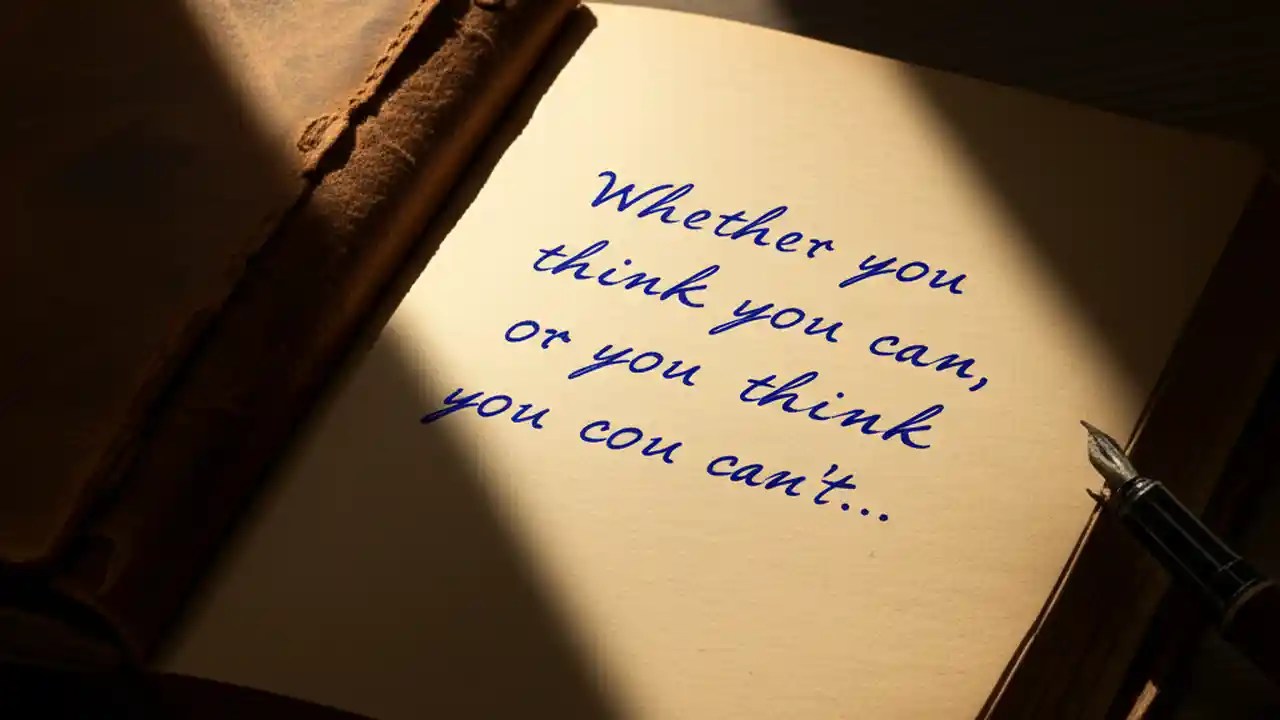 Whether you
think you can,
or you think
you cou can't...